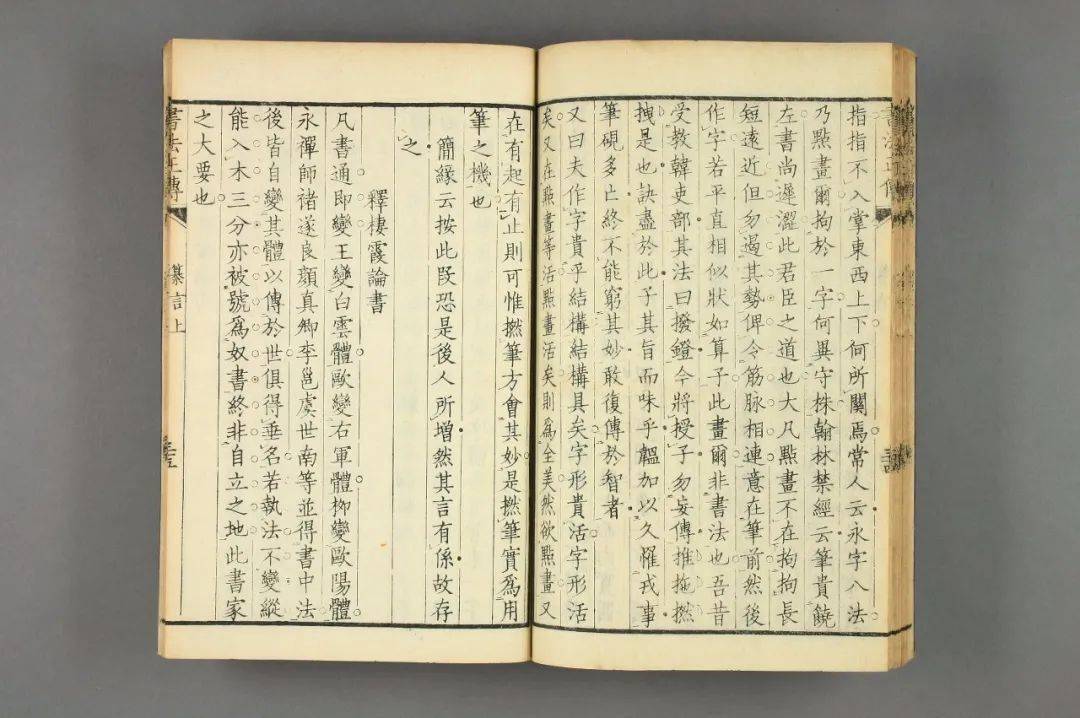 指指不入掌東西上下何所闗焉常人云永字八法
乃點畫爾拘於一字何異守株翰林禁經云筆貴饒
左書尚遲澀此君臣之道也大凡點畫不在拘拘長
短遠近但勿遏其勢俾令筋脉相連意在筆前然後
作字若平直相似狀如算子此畫爾非書法也吾昔
受教韓吏部其法曰撥鐙今將授子勿妄傳推拖撚
拽是也訣盡於此子其旨而味乎韞加以久罹戎事
筆硯多亡終不能窮其妙敢復傳於智者
又曰夫作字貴乎結構結構具矣字形貴活字形活
矣又在點畫等活點畫活矣則爲全美然欲點畫又
在有起有止則可惟撚筆方會其妙是撚筆實爲用
筆之機也
簡緣云按此段恐是後人所增然其言有係故存
之
釋棲霞論書
凡書通即變王變白雲體歐變右軍體柳變歐陽體
永禪師褚遂良顔真卿李邕虞世南等並得書中法
後皆自變其體以傳於世俱得垂名若執法不變縱
能入木三分亦被號爲奴書終非自立之地此書家
之大要也
書法正傳
纂言上
三五